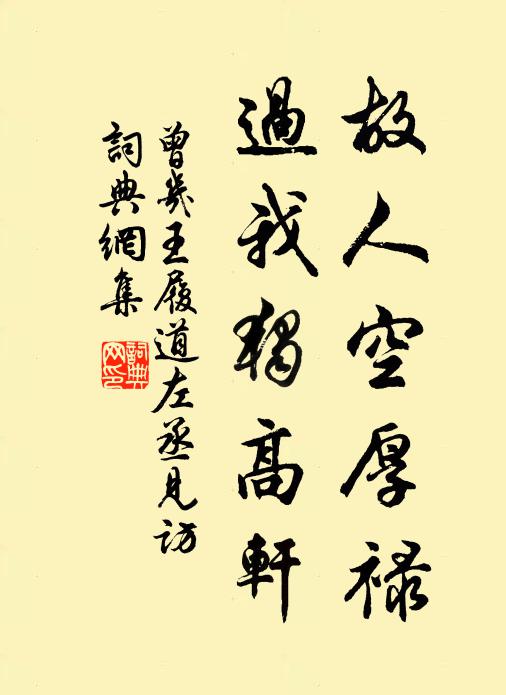 故人空厚祿
過我獨高軒
曾幾王履道左丞見訪
詞典網集
詞典網印